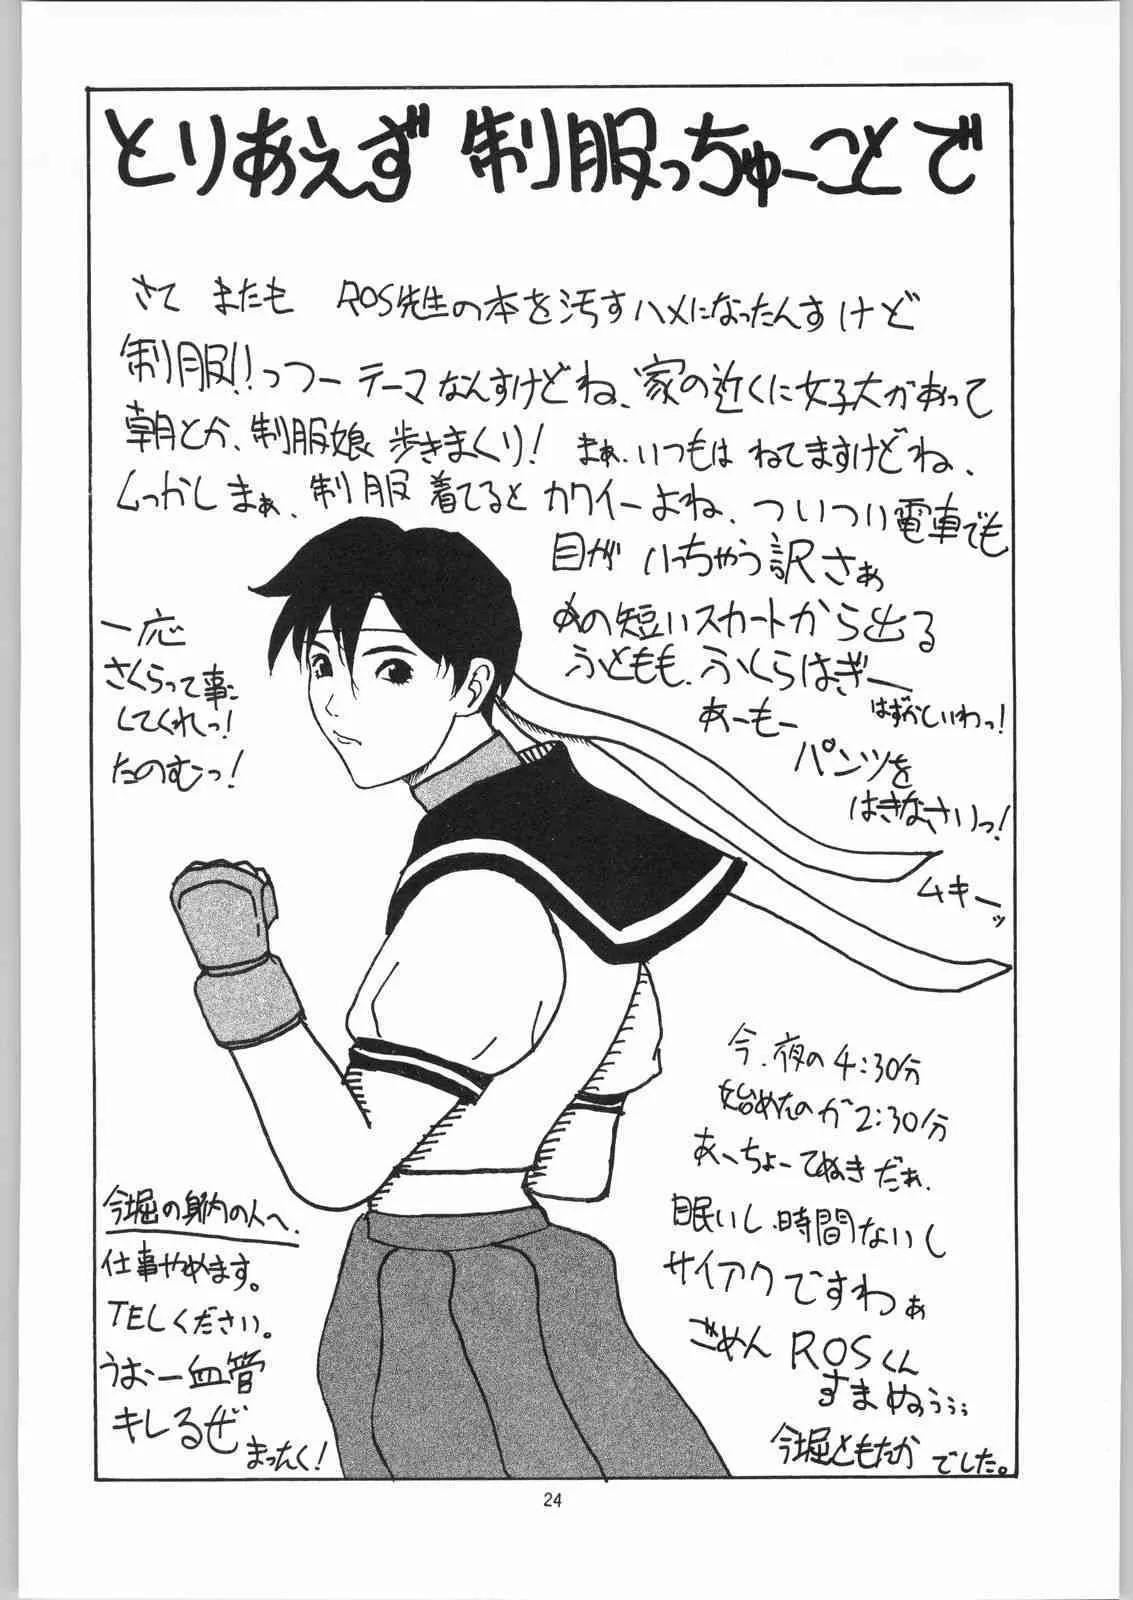 とりあえず 制服っちゅーことで
さて またも ROS先生の本を汚すハメになったんすけど
制服!!っつーテーマなんすけどね、家の近くに女子大があって
朝とか、制服娘 歩きまくり! まぁ、いつもは ねてますけどね、
しっかしまぁ、制服 着てると カワイーよね、ついつい電車でも
目が いっちゃう訳さぁ
あの短いスカートから出る
ふともも、ふくらはぎー
はずかしいわっ!
あーもー
パンツを
はきなさいっ!
ムキーッ
一応
さくらって事に
してくれっ!
たのむっ!
今、夜の4:30分
始めたのが2:30分
あーちょーてぬきだぁ、
眠いし、時間ないし
サイアクですわぁ
ごめん ROSくん
すまぬぅぅぅ
今堀ともたか でした。
今堀の身内の人へ、
仕事やめます。
TELください。
うおー血管
キレるぜ まったく!
24